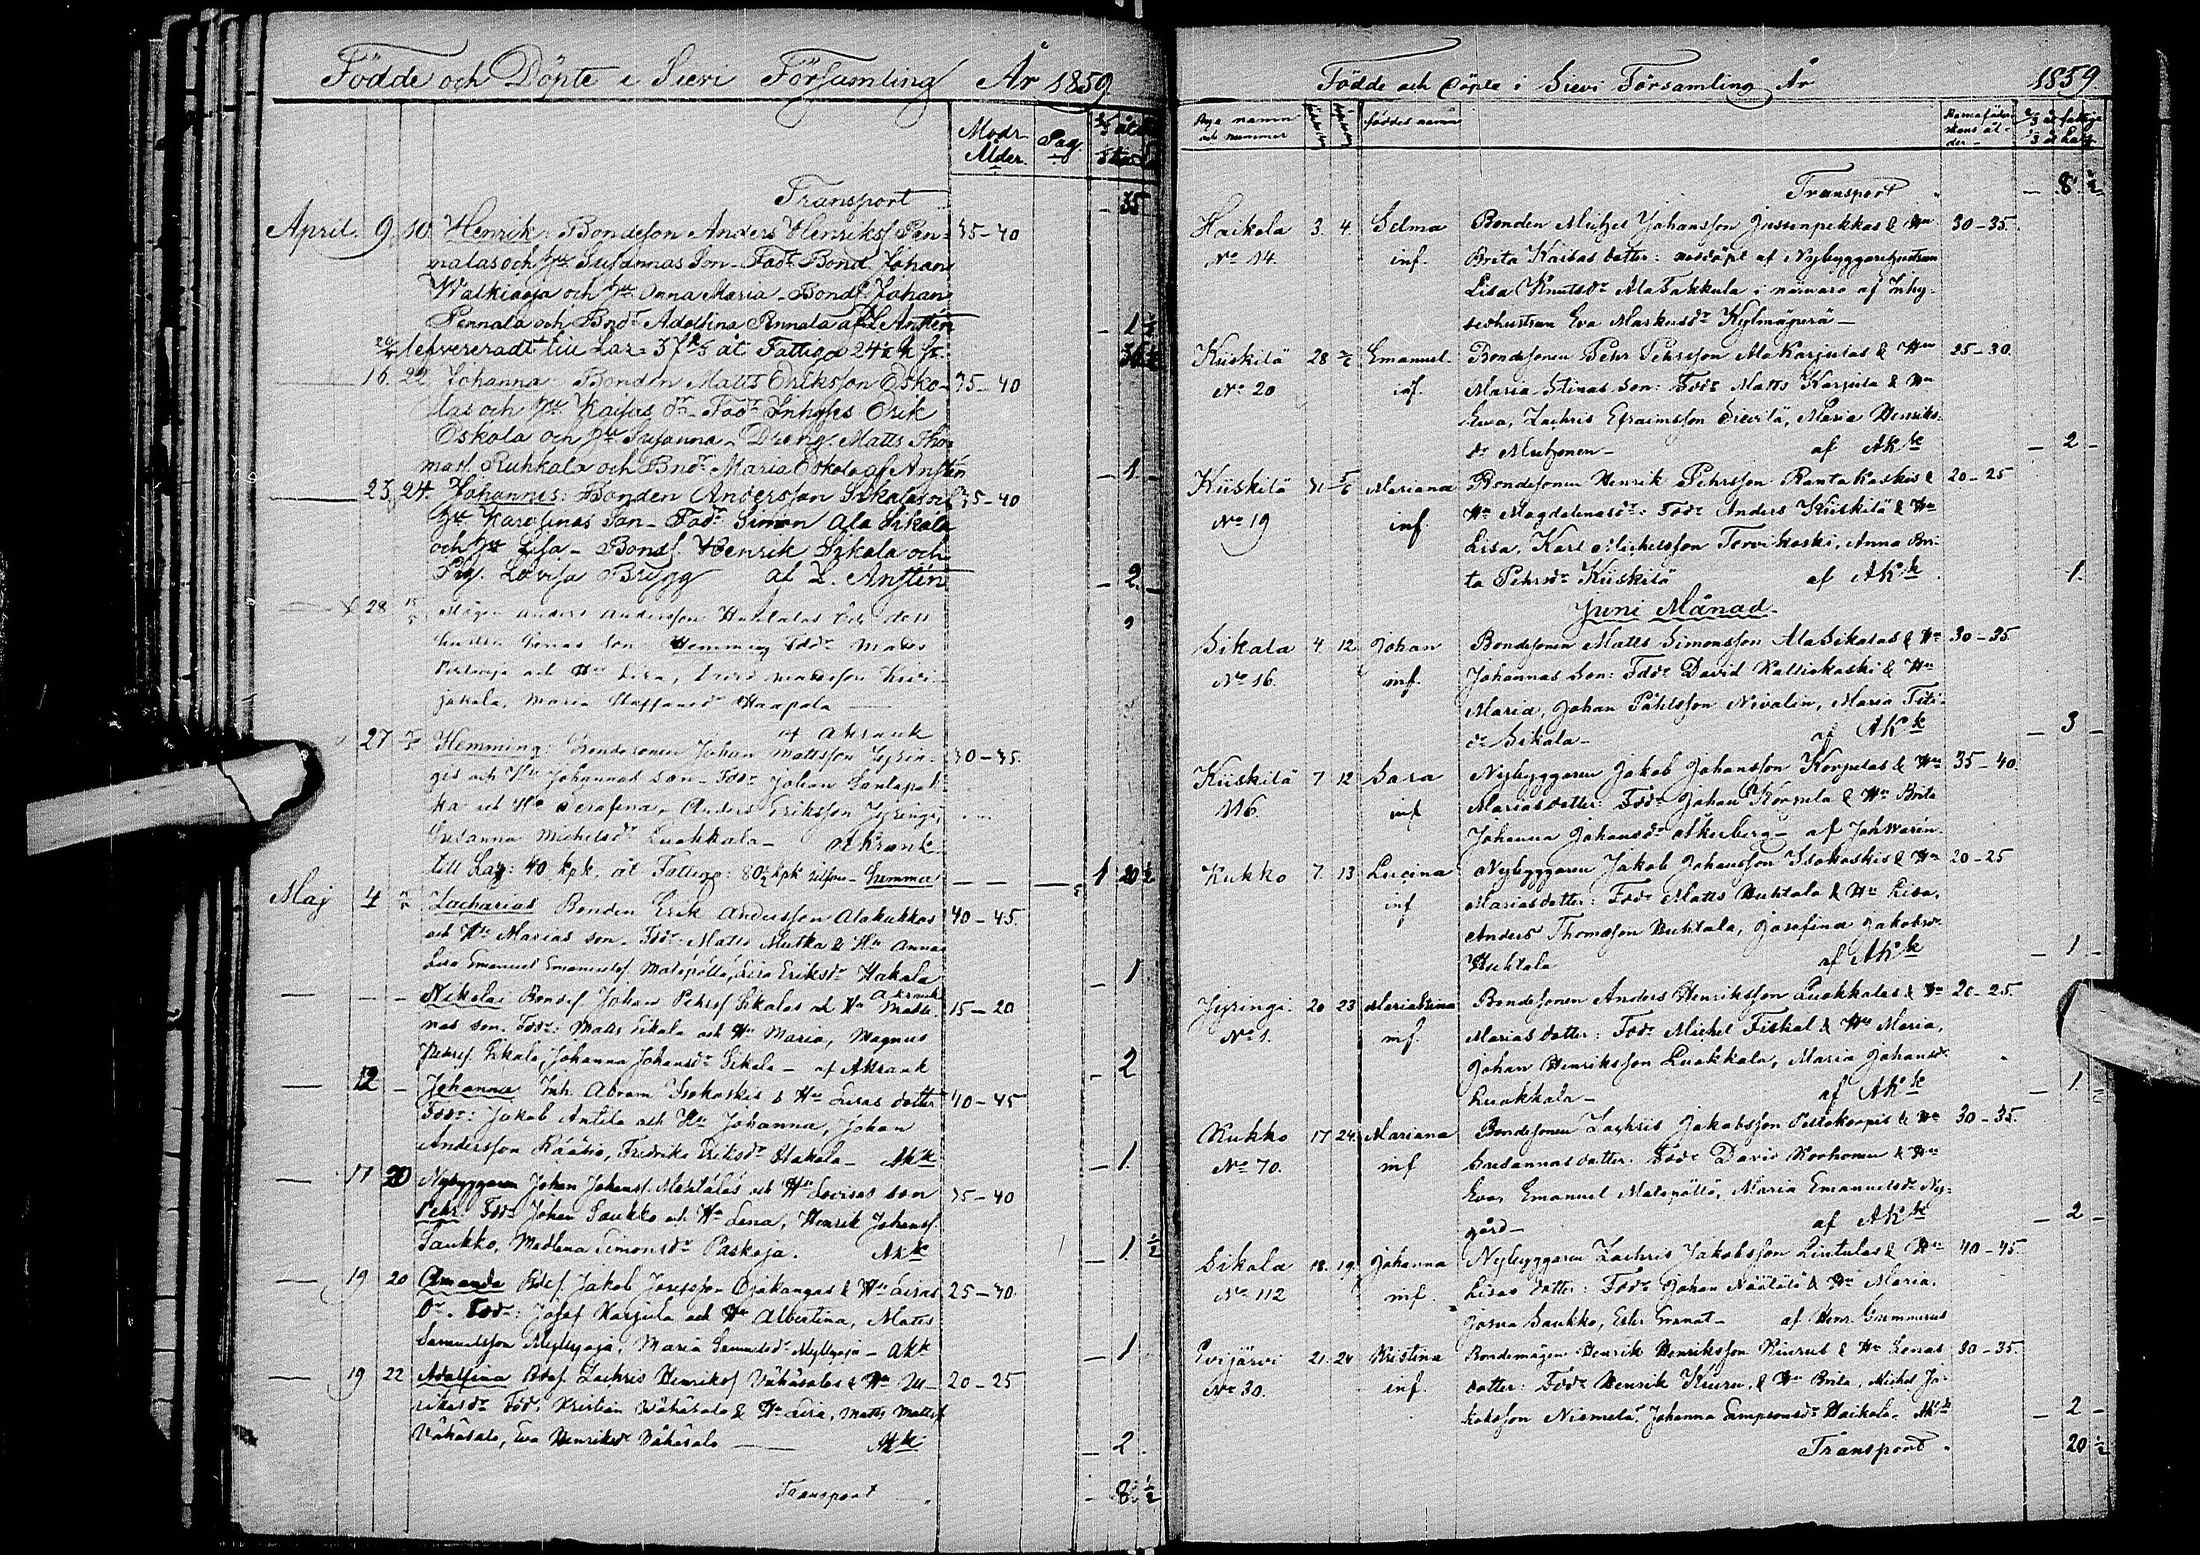 Födde och Döpte i Sievi Församling År 1859
Modr. Ålder. Pag.
Transport 35
April. 9 10. Henrik: Bondeson Anders Henrikss. Pen- 35-40
nalas och Hu Susannas Son - Fadr Bond. Johan
Walkiaoja och Hu Anna Maria - Bonds. Johan
Pennala och Bndr Adolfina Pennala af L. Anstén 1 1/2
lefvereradt till Laz: åt Fattiga 36 1/2
16. 22 Johanna Bonden Matts Eriksson Osko- 35-40
las och Hu Kaisas dr - Fadr Inhyses Erik
Oskola och Hu Susanna - Dreng Matts Tho-
mass. Ruhkala och Bndr Maria Oskola af Anstén 1
23. 24. Johannes: Bonden Andersson Sikalas och 35-40
Hu Karolinas Son - Fadr Simon Ala Sikala
och Hu Lisa - Bonds. Henrik Sikala och
Pig. Lovisa Brygg af L. Anstén 2
28 Mågen Anders Andersson Huhtalas och dess
hustru Lenas son Hemming Fadr Matts
och Hu Lisa,
Maria Staffansdr Haapala
af AKrank
27 Hemming: Bondesonen Johan Mattsson Jyrin- 30-35
gis och Hu Johannas son - Fadr Johan Santapak-
ka och Hu Serafina, Anders Eriksson Jyringi,
Susanna Michelsdr Luokkala - AKrank
till Laz: 40 kpk. åt Fattiga: 80 1/2 kpk silfver - Summa 1 20 1/2
Maj 4 Zacharias Bonden Erik Andersson Alakukkos 40-45
och Hu Marias son - Fadr: Matts Mutka & Hu Anna
Lisa Emanuel Emanuelss. Matopöllö, Lisa Eriksdr Hakala 1
AKrank
Nikolai Bondes. Johan Pehrss. Sikalas och Hu Madle- 15-20
nas son. Fadr: Matts Sikala och Hu Maria, Magnus
Pehrss. Sikala, Johanna Johansdr Sikala - af AKrank 2
12 Johanna Inh. Abram Isokoskis & Hu Lisas dotter 40-45
Fadr: Jakob Anttila och Hu Johanna, Johan
Andersson Rääbio, Fredrika Eriksdr Hakala - AKk 1
17 20 Nybyggaren Johan Johanss. Mehtälas och Hu Lovisas son 35-40
Pehr. Fadr Johan Saukko och Hu Lena, Henrik Johanss.
Saukko, Madlena Simonsdr Paskoja. AKk 1 1/2
19 20 Amanda Bdes. Jakob Josefsson Ojakangas & Hu Lisas 25-30
Dr. Fadr: Josef Karjula och Hu Albertina, Matts
Samuelsson Myllyoja, Maria Samuelsdr Myllyoja - AKk 1
19 22 Adolfina Bdes. Zachris Henrikss. Vähäsalos & Hu Ul- 20-25
rikas dr Fadr Kristian Vähäsalo & Hu Lisa, Matts Mattss.
Vähäsalo, Eva Henriksdr Vähäsalo AKk 2
Transport 8 1/2
Födde och Döpte i Sievi Församling År 1859
Bya namn och nummer Föddes namn Barnaföderskans ålder
Transport 8 1/2
Haikola 3. 4. Selma Bonden Michel Johansson Jussinpekkas & Hu 30-35.
No 14. inf. Brita Kaisas dotter: nöddöpt af Nybyggarehustrun
Lisa Knutsdr AlaTakkula i närvaro af Inhy-
seshustrun Eva Markusdr Kylmäperä -
Kiiskilä 28 Emanuel. Bondesonen Pehr Pehrsson AlaKarjulas & Hu 25-30.
No 20 inf. Maria Stinas son: Fadr Matts Karjula & Hu
Eva, Zachris Efraimsson Sievilä, Maria Henriks-
dr Mutjonen - af AKk 2
Kiiskilä 31 5/6 Mariana Bondesonen Henrik Pehrsson Rantakoskis & 20-25
No 19 inf. Hu Magdalenas dr: Fadr Anders Kiiskilä & Hu
Lisa, Karl Michelsson Tervikoski, Anna Bri-
ta Pehrsdr Kiiskilä af AKk 1.
Juni Månad -
Sikala 4 12 Johan Bondesonen Matts Simonsson AlaSikalas & Hu 30-35
No 16. inf. Johannas son: Fadr David Kalliokoski & Hu
Maria, Johan Påhlsson Nivalin, Maria
dr Sikala - af AKk 3
Kiiskilä 7 12 Sara Nybyggaren Jakob Johansson Korpelas & Hu 35-40
116. inf Marias dotter: Fadr Johan Korpela & Hu Brita
Johanna Johansdr Åkerberg - af Joh Warén.
Kukko 7. 13 Lucina Nybyggaren Jakob Johansson Isokoskis & Hu 20-25
inf Marias dotter: Fadr Matts Huhtala & Hu Lisa,
Anders Thomasson Huhtala, Josefina Jakobsdr
Huhtala af AKk 1
Jyringi. 20 23 MariaStina Bondesonen Anders Henriksson Luokkalas & Hu 20-25.
No 1. inf. Marias dotter: Fadr Michel Fiskal & Hu Maria,
Johan Henriksson Luokkala, Maria Johansdr
Luokkala - af AKk 1
Kukko 17 24. Mariana Bondesonen Zachris Jakobsson & Hu 30-35.
No 70. inf Susannas dotter. Fadr David Korhonen & Hu
Eva, Emanuel Matopöllö, Maria Emanuelsdr Ny-
gård - af AKk 2
Sikala 18. 19 Johanna Nybyggaren Zachris Jakobsson Lintulas & Hu 40-45.
No 112 inf. Lisas dotter: Fadr Johan Määttälä & Hu Maria.
Josua Saukko, Ester Granat - af Henr. Gummerus
Evijärvi 21. 24 Kristina Bondemågen Henrik Henriksson Kiurus & Hu Lenas 30-35.
No 30. inf. dotter: Fadr Henrik Kiuru, & Hu Brita, Michel Ja-
kobsson Niemelä, Johanna Sampsonsdr Haikola. AKk 2
Transport 20 1/2